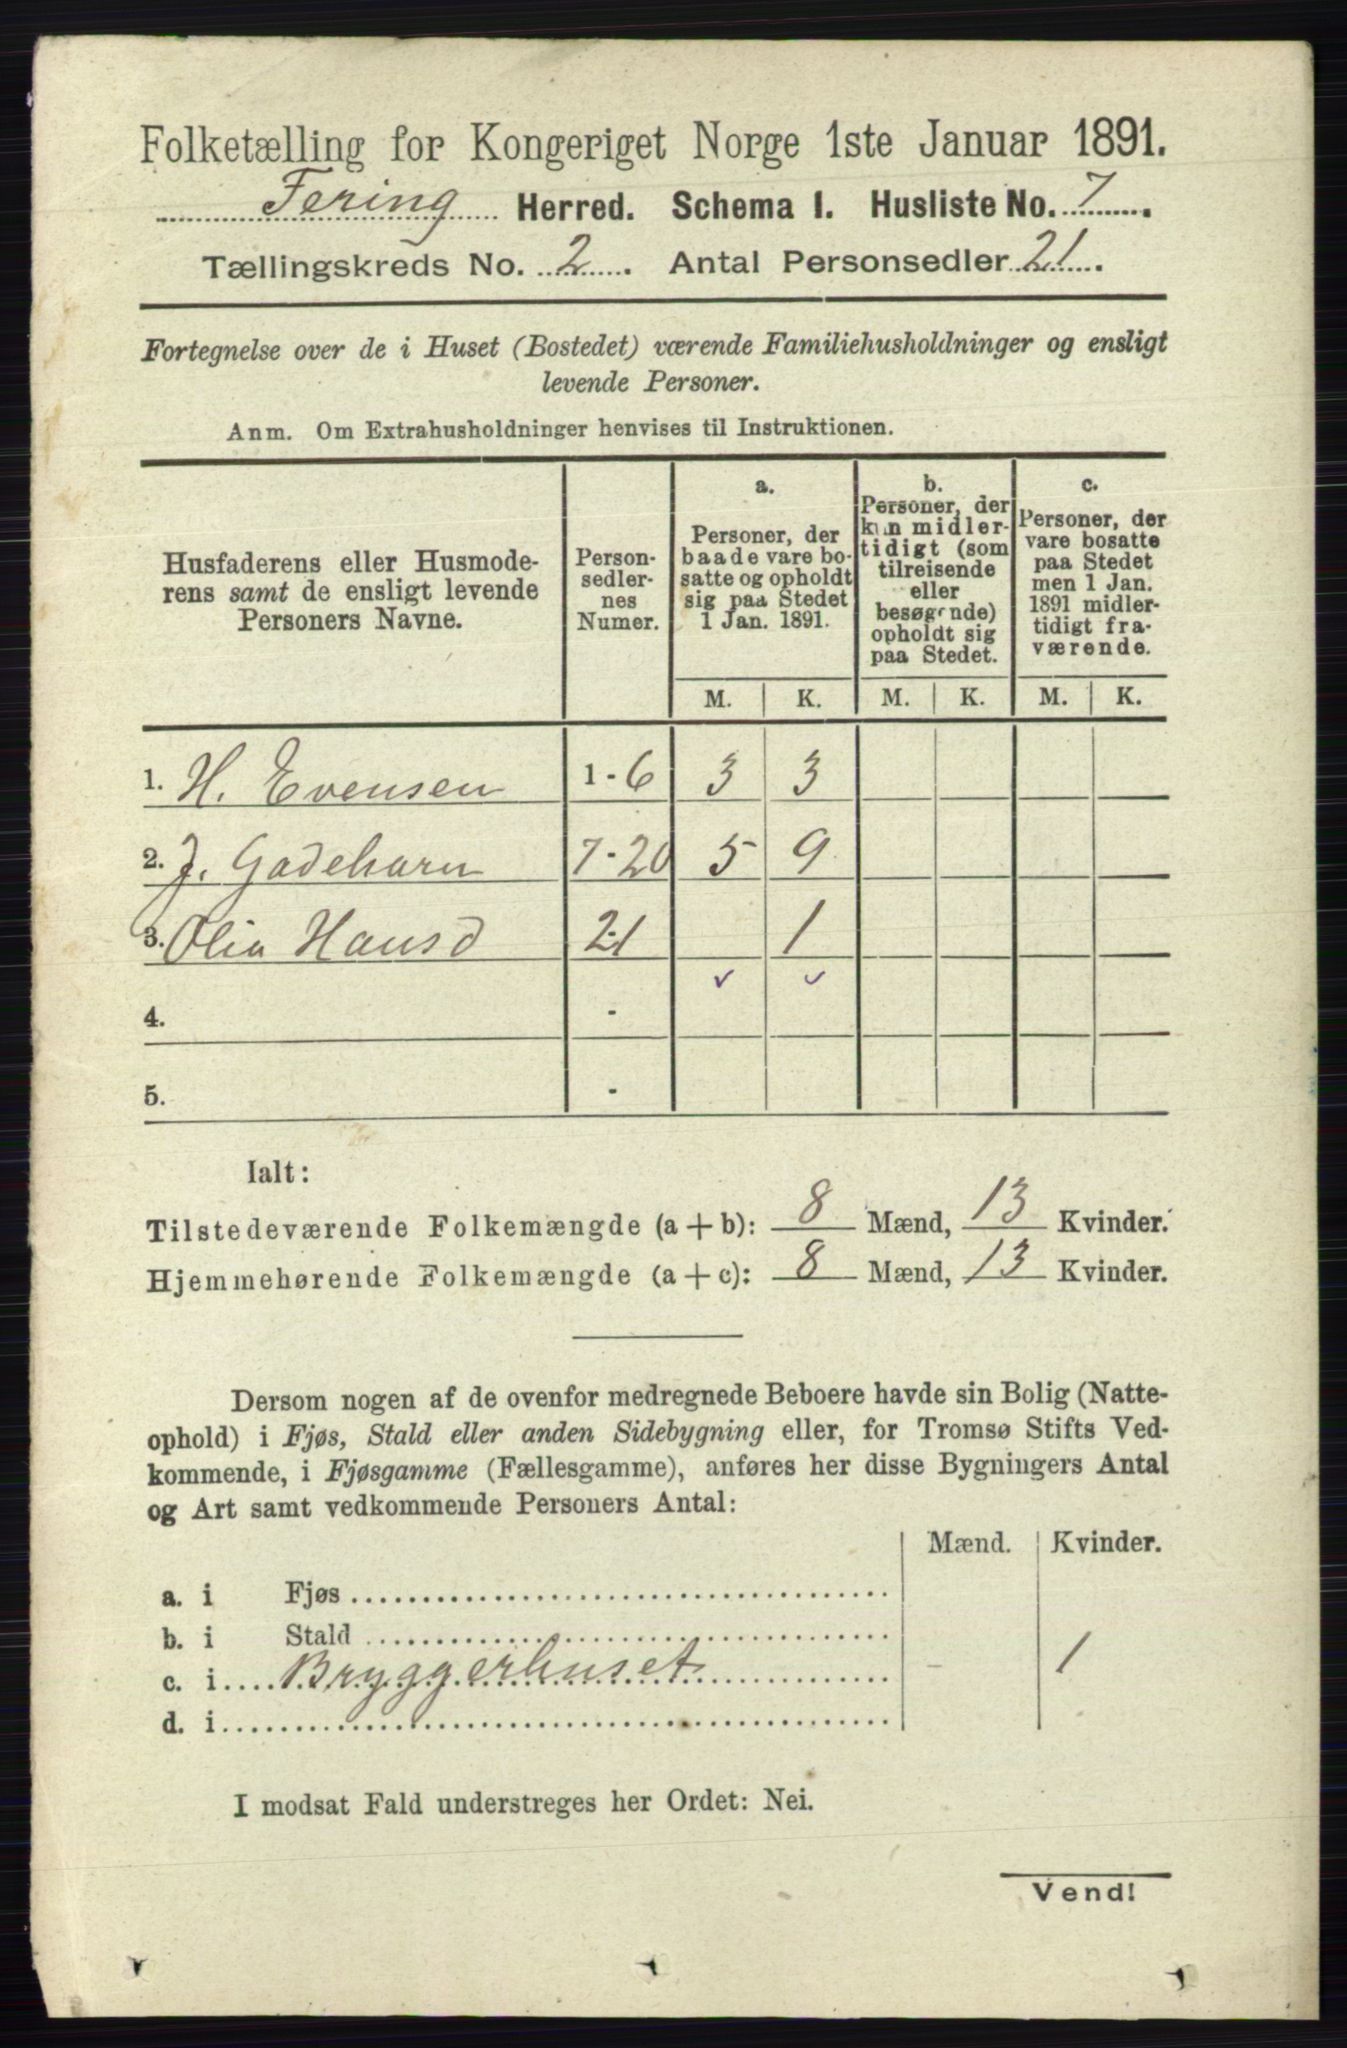 Folketælling for Kongeriget Norge 1ste Januar 1891.
Tering Herred. Schema I. Husliste No. 7.
Tællingskreds No. 2. Antal Personsedler 21.
Fortegnelse over de i Huset (Bostedet) værende Familiehusholdninger og ensligt
levende Personer.
Anm. Om Extrahusholdninger henvises til Instruktionen.
Husfaderens eller Husmode-
rens samt de ensligt levende
Personers Navne.
Person-
sedler-
nes
Numer.
a.
Personer, der
baade vare bo-
satte og opholdt
sig paa Stedet
1 Jan. 1891.
b.
Personer, der
kun midler-
tidigt (som
tilreisende
eller
besøgende)
opholdt sig
paa Stedet.
c.
Personer, der
vare bosatte
paa Stedet
men 1 Jan.
1891 midler-
tidigt fra-
værende.
M. K. M. K. M. K.
1. H. Evensen 1-6 3 3
2. J. Gadeharn 7-20 5 9
3. Olia Hansd 21 1
4. -
5. -
Ialt:
Tilstedeværende Folkemængde (a + b): 8 Mænd, 13 Kvinder.
Hjemmehørende Folkemængde (a + c): 8 Mænd, 13 Kvinder.
Dersom nogen af de ovenfor medregnede Beboere havde sin Bolig (Natte-
ophold) i Fjøs, Stald eller anden Sidebygning eller, for Tromsø Stifts Ved-
kommende, i Fjøsgamme (Fællesgamme), anføres her disse Bygningers Antal
og Art samt vedkommende Personers Antal:
Mænd. Kvinder.
a. i Fjøs
b. i Stald
c. i Bryggerhuset - 1
d. i
I modsat Fald understreges her Ordet: Nei.
Vend!